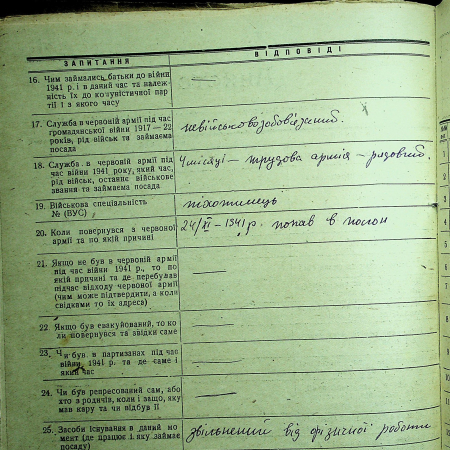 ЗАПИТАННЯ
ВІДПОВІДІ
16. Чим займались батьки до війни
1941 р. і в даний час та належ-
ність їх до комуністичної пар-
тії і з якого часу
—
17. Служба в червоній армії під час
громадянської війни 1917—22
років, рід військ та займаєма
посада
невійськовозобов'язаний.
18. Служба в червоній армії під
час війни 1941 року, який час,
рід військ, останнє військове
звання та займаєма посада
4 місяці — трудова армія — рядовий.
19. Військова спеціальність
№ (ВУС)
піхотинець
20. Коли повернувся з червоної
армії та по якій причині
24/XI — 1941 р. попав в полон
21. Якщо не був в червоній армії
під час війни 1941 р., то по
якій причині та де перебував
підчас відходу червоної армії
(чим може підтвердити, а коли
свідками то їх адреса)
—
22. Якщо був евакуйований, то ко-
ли повернувся та звідки саме
—
23. Чи був в партизанах під час
війни 1941 р. та де саме і
який час
—
24. Чи був репресований сам, або
хто з родичів, коли і защо, яку
мав кару та чи відбув її
—
25. Засоби існування в даний мо-
мент (де працює і яку займає
посаду)
звільнений від фізичної роботи